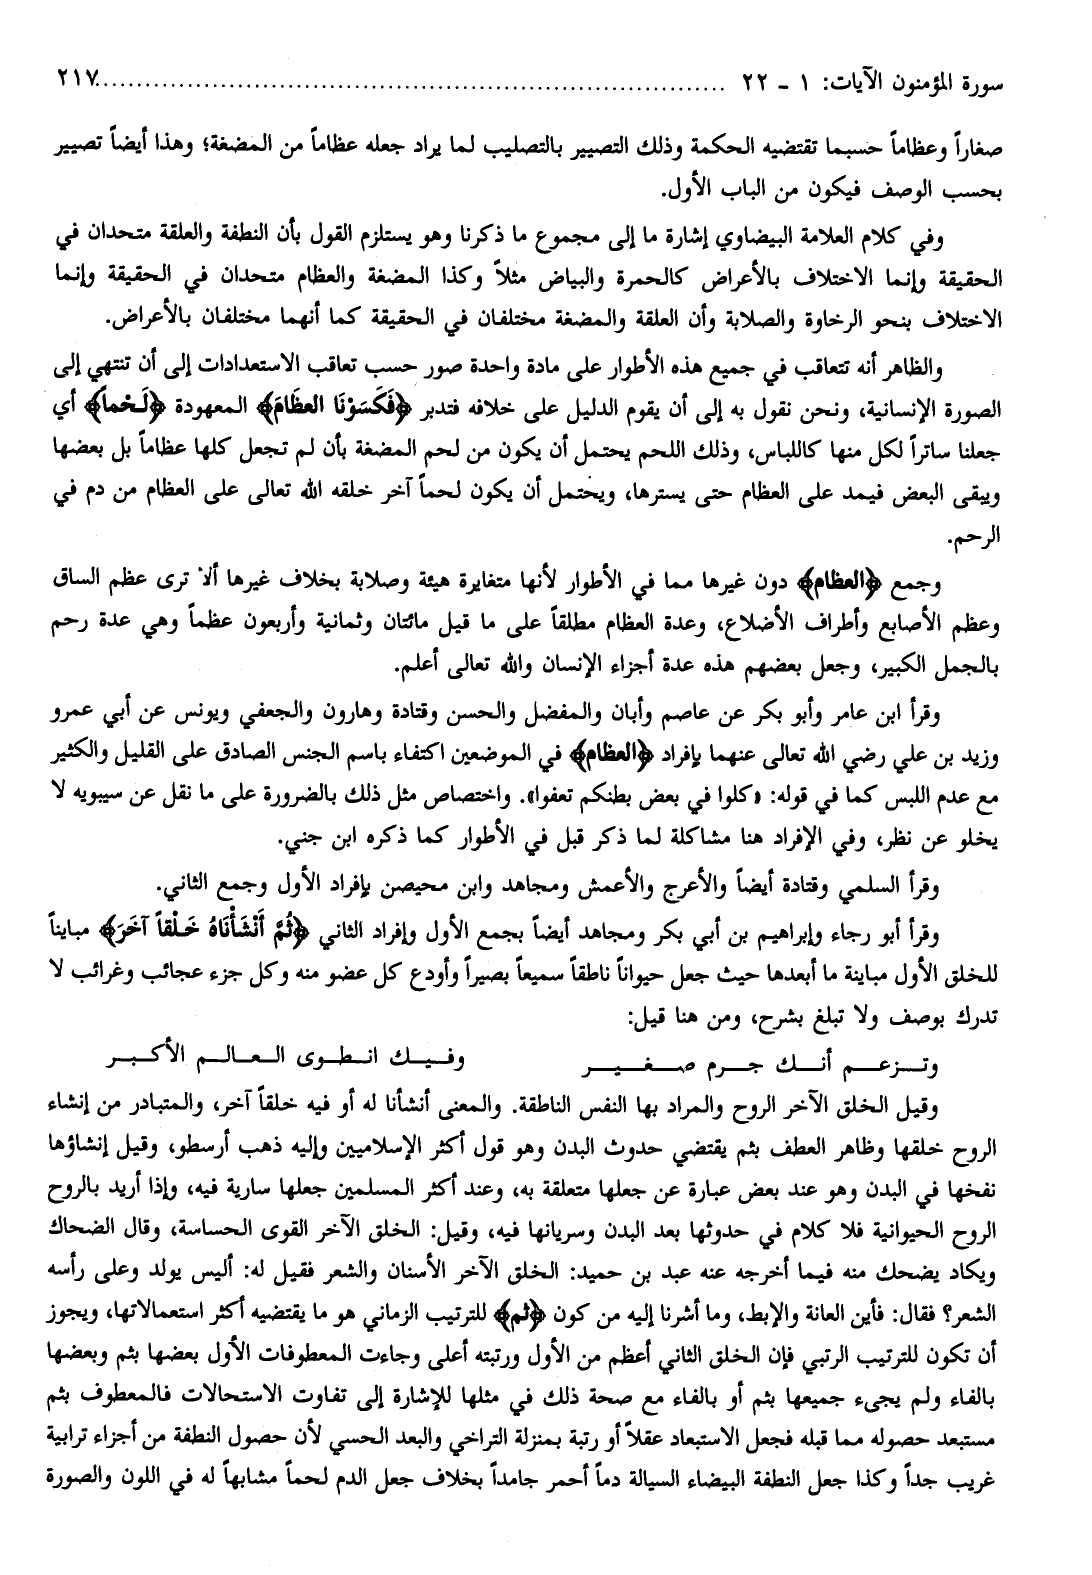 سورة المؤمنون الآيات: ١ - ٢٢ ........................................................................ ٢١٧
صغاراً وعظاماً حسبما تقتضيه الحكمة وذلك التصيير بالتصليب لما يراد جعله عظاماً من المضغة؛ وهذا أيضاً تصيير
بحسب الوصف فيكون من الباب الأول.
وفي كلام العلامة البيضاوي إشارة ما إلى مجموع ما ذكرنا وهو يستلزم القول بأن النطفة والعلقة متحدان في
الحقيقة وإنما الاختلاف بالأعراض كالحمرة والبياض مثلاً وكذا المضغة والعظام متحدان في الحقيقة وإنما
الاختلاف بنحو الرخاوة والصلابة وأن العلقة والمضغة مختلفان في الحقيقة كما أنهما مختلفان بالأعراض.
والظاهر أنه تتعاقب في جميع هذه الأطوار على مادة واحدة صور حسب تعاقب الاستعدادات إلى أن تنتهي إلى
الصورة الإنسانية، ونحن نقول به إلى أن يقوم الدليل على خلافه فتدبر ﴿فَكَسَوْنَا العظَامَ﴾ المعهودة ﴿لَحْماً﴾ أي
جعلنا ساتراً لكل منها كاللباس، وذلك اللحم يحتمل أن يكون من لحم المضغة بأن لم تجعل كلها عظاماً بل بعضها
ويبقى البعض فيمد على العظام حتى يسترها، ويحتمل أن يكون لحماً آخر خلقه الله تعالى على العظام من دم في
الرحم.
وجمع ﴿العظام﴾ دون غيرها مما في الأطوار لأنها متغايرة هيئة وصلابة بخلاف غيرها ألا ترى عظم الساق
وعظم الأصابع وأطراف الأضلاع، وعدة العظام مطلقاً على ما قيل مائتان وثمانية وأربعون عظماً وهي عدة رحم
بالجمل الكبير، وجعل بعضهم هذه عدة أجزاء الإنسان والله تعالى أعلم.
وقرأ ابن عامر وأبو بكر عن عاصم وأبان والمفضل والحسن وقتادة وهارون والجعفي ويونس عن أبي عمرو
وزيد بن علي رضي الله تعالى عنهما بإفراد ﴿العظام﴾ في الموضعين اكتفاء باسم الجنس الصادق على القليل والكثير
مع عدم اللبس كما في قوله: «كلوا في بعض بطنكم تعفوا». واختصاص مثل ذلك بالضرورة على ما نقل عن سيبويه لا
يخلو عن نظر، وفي الإفراد هنا مشاكلة لما ذكر قبل في الأطوار كما ذكره ابن جني.
وقرأ السلمي وقتادة أيضاً والأعرج والأعمش ومجاهد وابن محيصن بإفراد الأول وجمع الثاني.
وقرأ أبو رجاء وإبراهيم بن أبي بكر ومجاهد أيضاً بجمع الأول وإفراد الثاني ﴿ثُمَّ أَنْشَأْنَاهُ خَلْقاً آخَرَ﴾ مبايناً
للخلق الأول مباينة ما أبعدها حيث جعل حيواناً ناطقاً سميعاً بصيراً وأودع كل عضو منه وكل جزء عجائب وغرائب لا
تدرك بوصف ولا تبلغ بشرح، ومن هنا قيل:
وتـزعـم أنـك جـرم صـغـيـر وفـيـك انـطـوى الـعـالـم الأكـبـر
وقيل الخلق الآخر الروح والمراد بها النفس الناطقة. والمعنى أنشأنا له أو فيه خلقاً آخر، والمتبادر من إنشاء
الروح خلقها وظاهر العطف بثم يقتضي حدوث البدن وهو قول أكثر الإسلاميين وإليه ذهب أرسطو، وقيل إنشاؤها
نفخها في البدن وهو عند بعض عبارة عن جعلها متعلقة به، وعند أكثر المسلمين جعلها سارية فيه، وإذا أريد بالروح
الروح الحيوانية فلا كلام في حدوثها بعد البدن وسريانها فيه، وقيل: الخلق الآخر القوى الحساسة، وقال الضحاك
ويكاد يضحك منه فيما أخرجه عنه عبد بن حميد: الخلق الآخر الأسنان والشعر فقيل له: أليس يولد وعلى رأسه
الشعر؟ فقال: فأين العانة والإبط، وما أشرنا إليه من كون ﴿ثم﴾ للترتيب الزماني هو ما يقتضيه أكثر استعمالاتها، ويجوز
أن تكون للترتيب الرتبي فإن الخلق الثاني أعظم من الأول ورتبته أعلى وجاءت المعطوفات الأول بعضها بثم وبعضها
بالفاء ولم يجىء جميعها بثم أو بالفاء مع صحة ذلك في مثلها للإشارة إلى تفاوت الاستحالات فالمعطوف بثم
مستبعد حصوله مما قبله فجعل الاستبعاد عقلاً أو رتبة بمنزلة التراخي والبعد الحسي لأن حصول النطفة من أجزاء ترابية
غريب جداً وكذا جعل النطفة البيضاء السيالة دماً أحمر جامداً بخلاف جعل الدم لحماً مشابهاً له في اللون والصورة